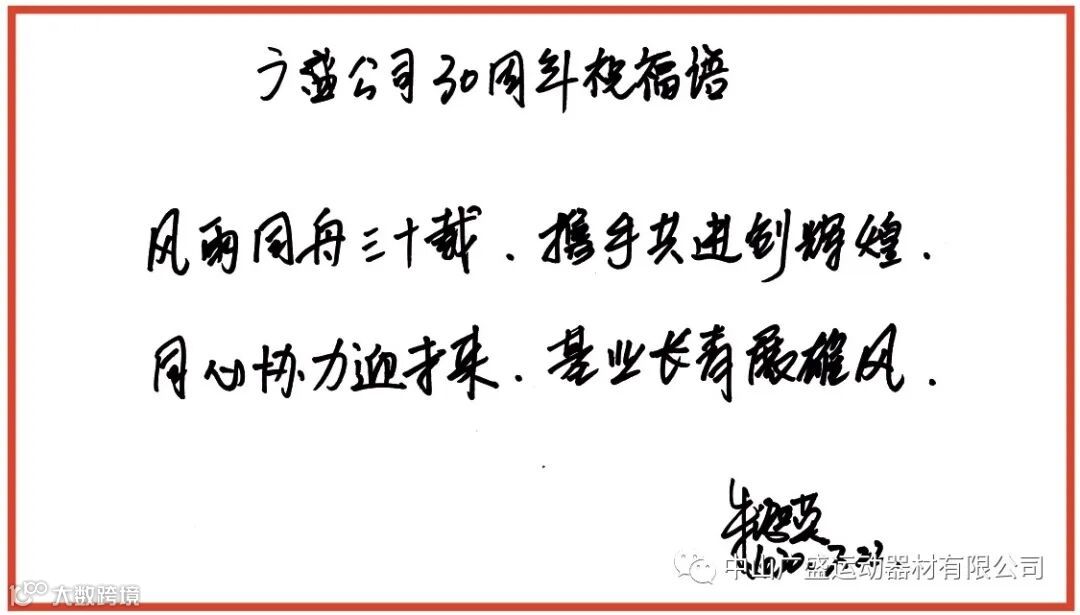 广盛公司30周年祝福语
风雨同舟三十载.携手共进创辉煌.
同心协力迎未来.基业长青展雄风.
中山广盛运动器材有限公司
大数跨境